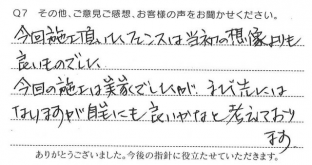 Q7 その他、ご意見ご感想、お客様の声をお聞かせください。
今回施工頂いたフェンスは当初の想像よりも
良いものでした
今回の施工は実家でしたが、まだ先には
なりますが自宅にも良いかなと考えており
ます。
ありがとうございました。今後の指針に役立たせていただきます。